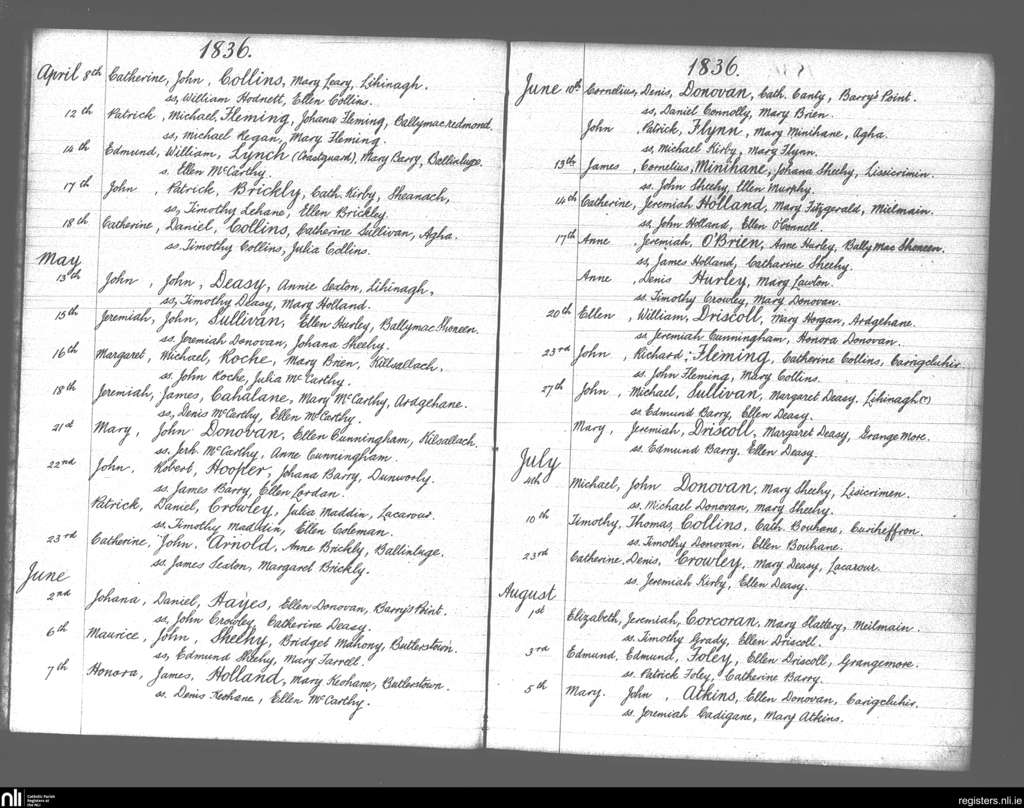 1836.
April 8th Catherine, John, Collins, Mary Leary, Lihinagh.
ss, William Hodnett, Ellen Collins.
12th Patrick, Michael, Fleming, Johana Fleming, Ballymacredmond.
ss, Michael Regan, Mary Fleming.
14th Edmund, William, Lynch (Coastguard), Mary Barry, Ballinluge.
s. Ellen McCarthy.
17th John, Patrick, Brickly, Cath. Kirby, Sheanach,
ss, Timothy Lehane, Ellen Brickley.
18th Catherine, Daniel, Collins, Catherine Sullivan, Agha.
ss. Timothy Collins, Julia Collins.
May
13th John, John, Deasy, Annie Sexton, Lihinagh,
ss, Timothy Deasy, Mary Holland.
15th Jeremiah, John, Sullivan, Ellen Hurley, Ballymac Shoneen.
ss. Jeremiah Donovan, Johana Sheehy.
16th Margaret, Michael, Roche, Mary Brien, Kilsallach,
ss. John Roche, Julia McCarthy.
18th Jeremiah, James, Cahalane, Mary McCarthy, Ardgehane.
ss, Denis McCarthy, Ellen McCarthy.
21st Mary, John Donovan, Ellen Cunningham, Kilsallach.
ss. Jerh. McCarthy, Anne Cunningham.
22nd John, Robert, Hoopler, Johana Barry, Dunworly.
ss, James Barry, Ellen Lordan.
Patrick, Daniel, Crowley, Julia Maddin, Lacarour.
ss, Timothy Maddin, Ellen Coleman.
23rd Catherine, John, Arnold, Anne Brickly, Ballinluge.
ss. James Sexton, Margaret Brickly.
June
2nd Johana, Daniel, Hayes, Ellen Donovan, Barry's Point.
ss, John Crowley, Catherine Deasy.
6th Maurice, John, Sheehy, Bridget Mahony, Butlerstown.
ss, Edmund Sheehy, Mary Farrell.
7th Honora, James, Holland, Mary Keohane, Butlerstown.
ss. Denis Keohane, Ellen McCarthy.
1836.
June 10th Cornelius, Denis, Donovan, Cath. Canty, Barry's Point.
ss, Daniel Connolly, Mary Brien.
John Patrick, Flynn, Mary Minihane, Agha.
ss, Michael Kirby, Mary Flynn.
13th James, Cornelius, Minihane, Johana Sheehy, Lissicrimin.
ss. John Sheehy, Ellen Murphy.
14th Catherine, Jeremiah Holland, Mary Fitzgerald, Mielmain.
ss, John Holland, Ellen O'Connell.
17th Anne, Jeremiah, O'Brien, Anne Hurley, Bally Mac Shoneen.
ss, James Holland, Catharine Sheehy.
Anne, Denis Hurley, Mary Lawton.
ss. Timothy Crowley, Mary Donovan.
20th Ellen, William, Driscoll, Mary Horgan, Ardgehane.
ss, Jeremiah Cunningham, Honora Donovan.
23rd John, Richard, Fleming, Catherine Collins, Carrigcluhir.
ss. John Fleming, Mary Collins.
27th John, Michael, Sullivan, Margaret Deasy, Lihinagh (?)
ss. Edmund Barry, Ellen Deasy.
Mary, Jeremiah, Driscoll, Margaret Deasy, Grange More.
ss. Edmund Barry, Ellen Deasy.
July
4th Michael, John Donovan, Mary Sheehy, Lisicrimen.
ss. Michael Donovan, Mary Sheehy.
10th Timothy, Thomas, Collins, Cath. Bouhane, Curiheffron.
ss. Timothy Donovan, Ellen Bouhane.
23rd Catherine, Denis, Crowley, Mary Deasy, Lacarour.
ss, Jeremiah Kirby, Ellen Deasy.
August
1st Elizabeth, Jeremiah, Corcoran, Mary Slattery, Meilmain.
ss. Timothy Grady, Ellen Driscoll.
3rd Edmund, Edmund, Foley, Ellen Driscoll, Grangemore.
ss. Patrick Foley, Catherine Barry.
5th Mary. John, Atkins, Ellen Donovan, Carigcluhir.
ss. Jeremiah Cadigane, Mary Atkins.
nli Catholic Parish Registers at the NLI
registers.nli.ie